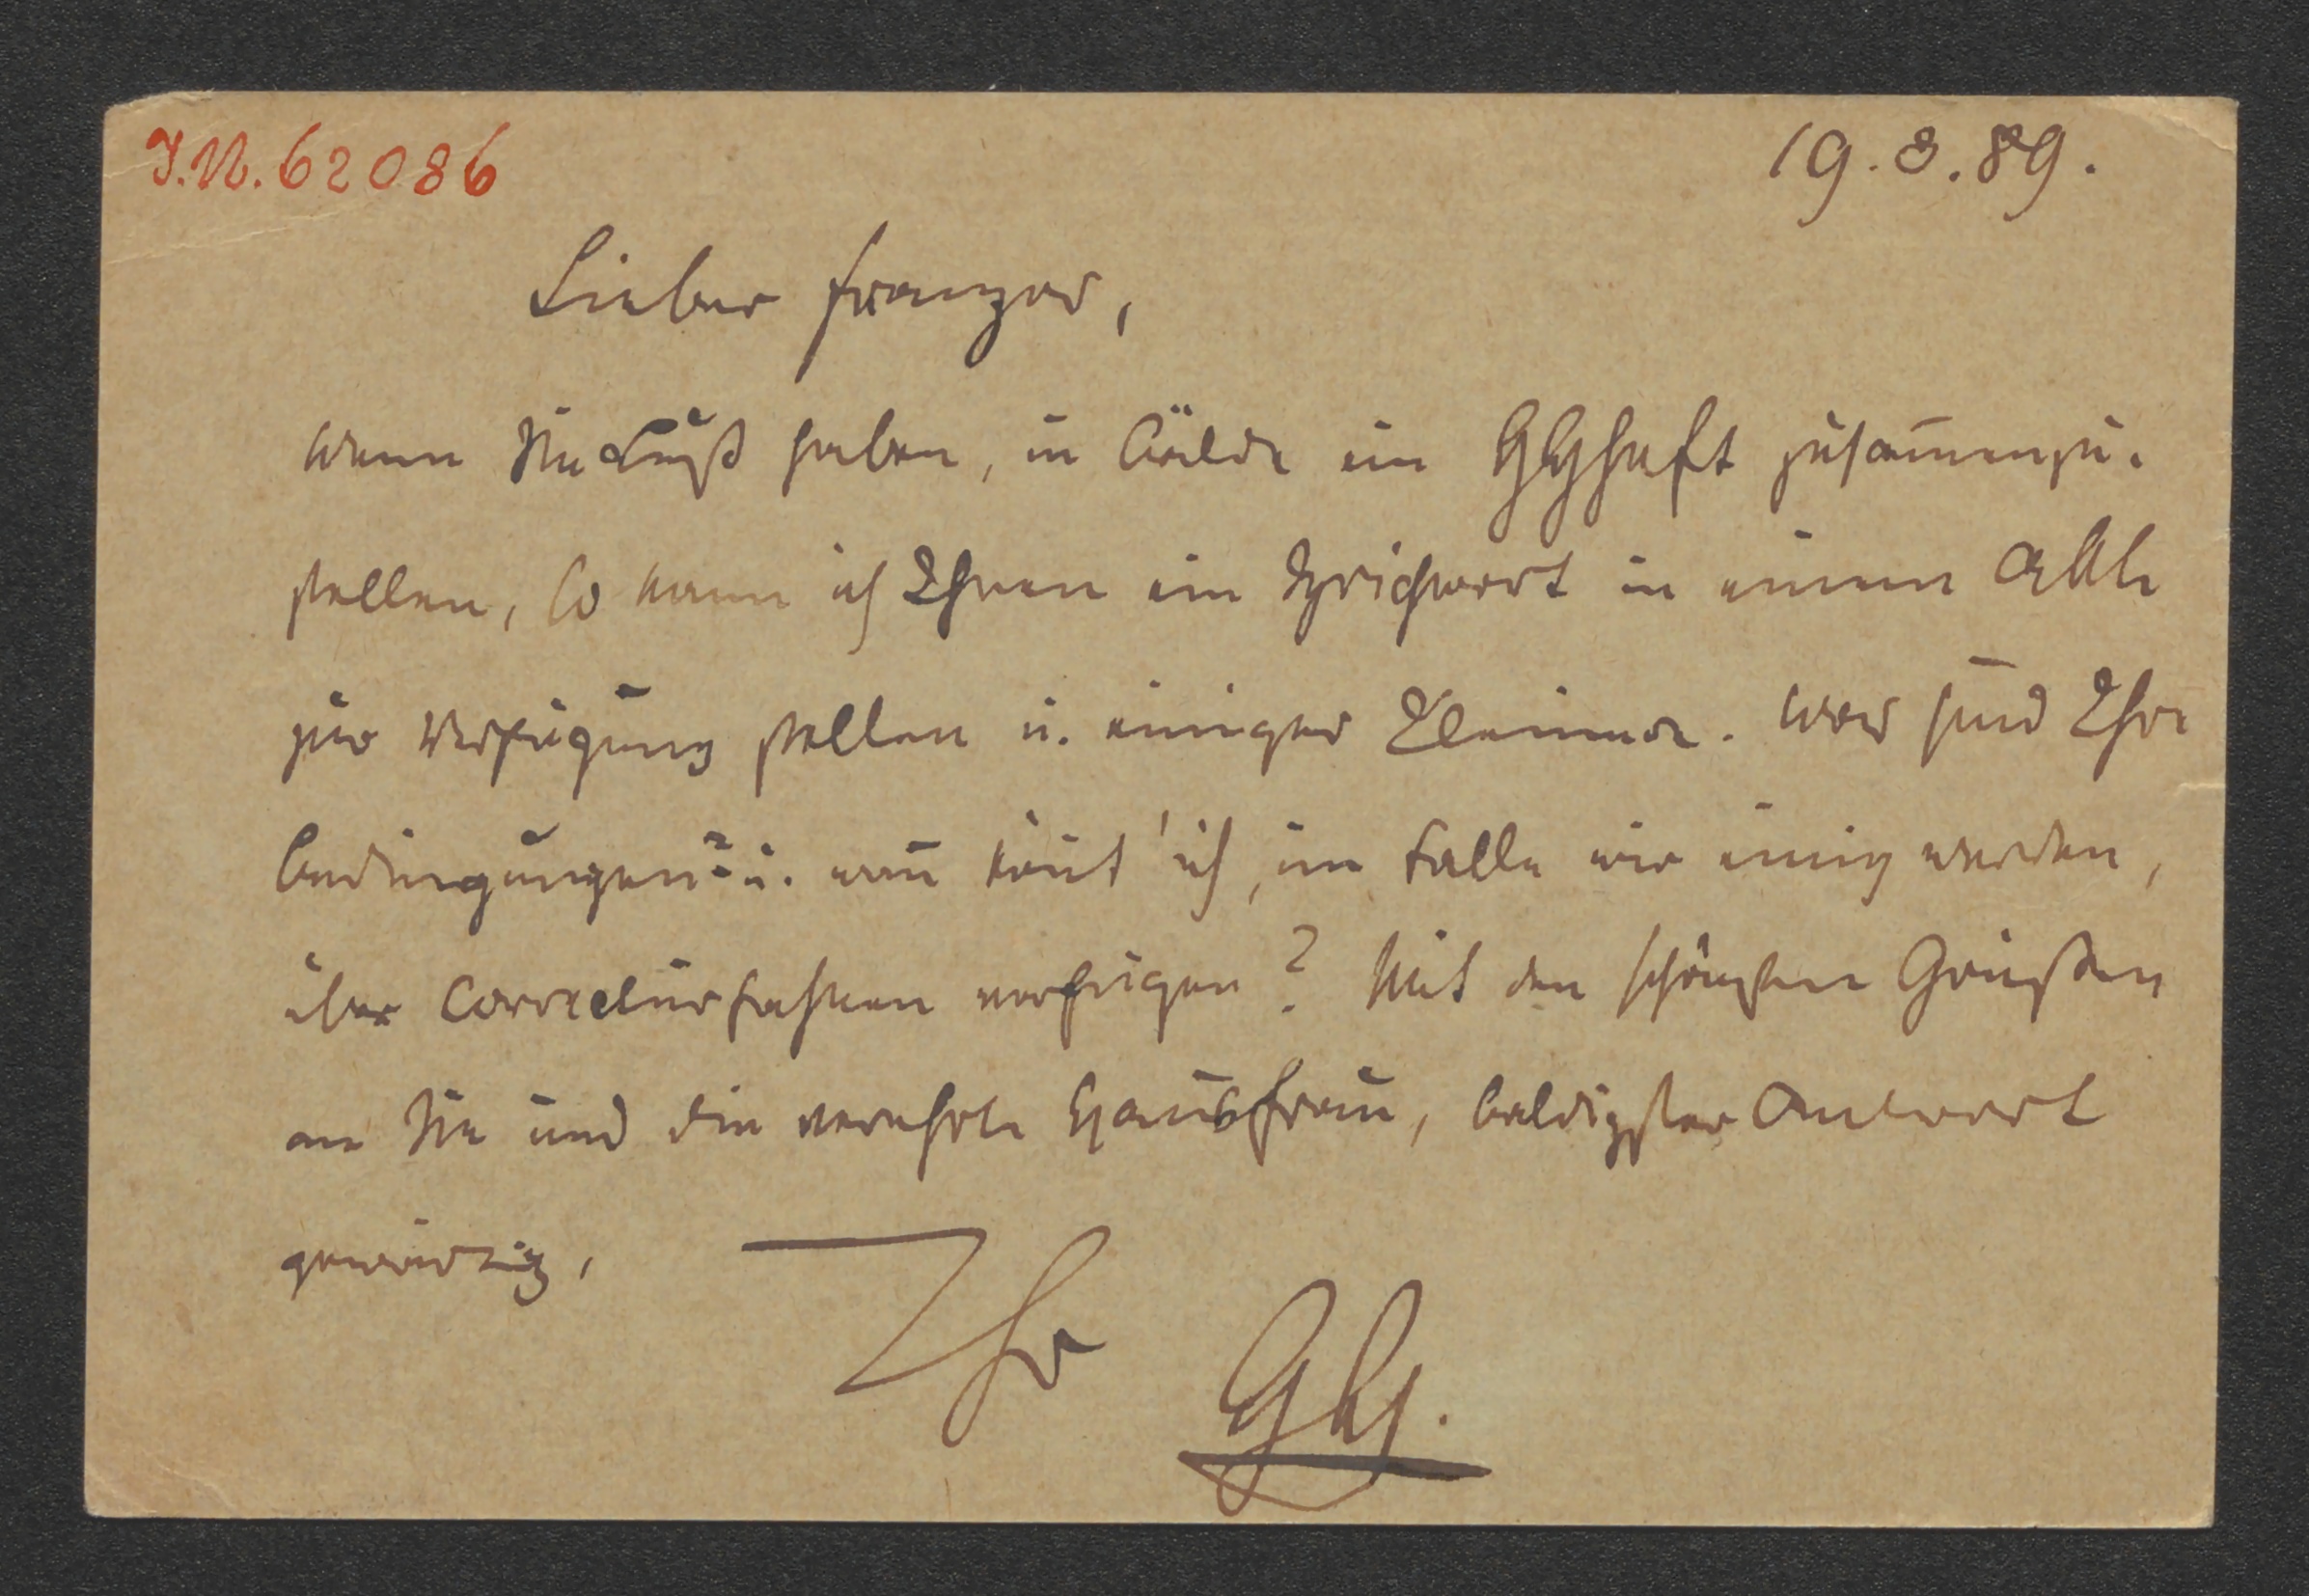 I.N. 62086
19.3.89.
Lieber Franzos,
wenn Sie Lust haben, in Bälde ein GGheft zusammenzu-
stellen, so kann ich Ihnen ein Sprichwort in einem Akte
zur Verfügung stellen u. einiges Kleinere. Was sind Ihre
Bedingungen? u. wañ köñt' ich, im Falle wir einig werden,
über Correcturfahnen verfügen? Mit den schönsten Grüßen
an Sie und die verehrte Hausfrau, baldigster Antwort
gewärtig,
Ihr